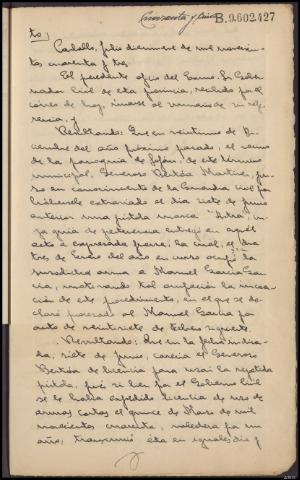 Cuarenta y cinco B.9.602.427
to;
Carballo, julio diecinueve de mil novecien-
to, cuarenta y tres.
El precedente oficio del Excmo Sr. Gober-
nador Civil de esta provincia, recibido por el
correo de hoy, únase al sumario de su refe-
rencia, y
Resultando: Que en veintiuno de Di-
ciembre del año próximo pasado, el vecino
de la parroquia de Sofán, de este término
municipal, Generoso Bertóa Martínez, pu-
so en conocimiento de la Guardia Civil
habérsele extraviado el día siete de junio
anterior una pistola marca "Astra", cu-
ya guía de pertenencia entregó en aquel
acto a expresada fuerza; la cual, el día
tres de Enero del año en curso ocupó la
susodicha arma a Manuel García Gar-
cía, motivando tal ocupación la incoa-
ción de este procedimiento, en el que se de-
claró procesado al Manuel García por
auto de veintisiete de febrero siguiente.
Resultando: Que en la fecha indica-
da, siete de junio, carecía el Generoso
Bertóa de licencia para usar la repetida
pistola, pues si bien por el Gobierno Civil
se le había expedido licencia de uso de
armas cortas el quince de Marzo de mil
novecientos cuarenta, valedera por un
año, transcurrió ésta en igual día y